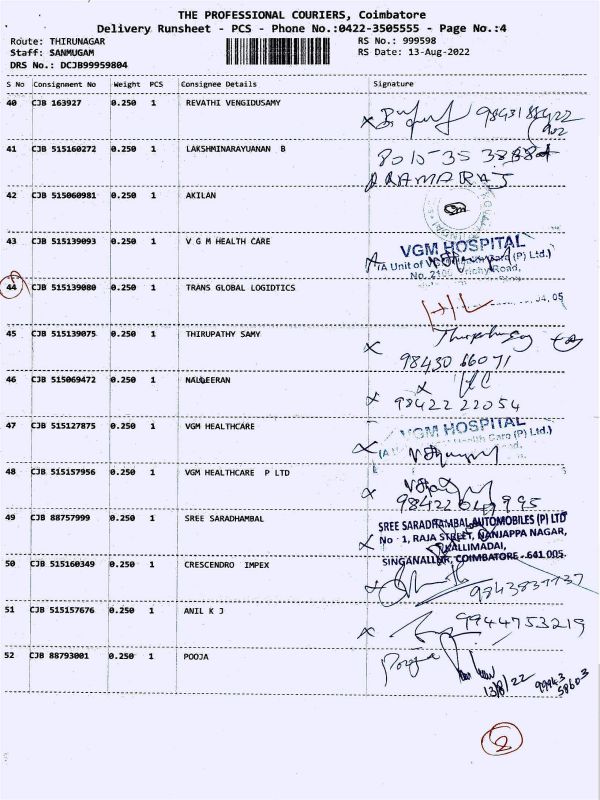 THE PROFESSIONAL COURIERS, Coimbatore
Delivery Runsheet - PCS - Phone No.:0422-3505555 - Page No.:4
Route: THIRUNAGAR RS No.: 999598
Staff: SANMUGAM RS Date: 13-Aug-2022
DRS No.: DCJB99959804
S No Consignment No Weight PCS Consignee Details Signature
40 CJB 163927 0.250 1 REVATHI VENGIDUSAMY
41 CJB 515160272 0.250 1 LAKSHMINARAYUANAN B
42 CJB 515060981 0.250 1 AKILAN
43 CJB 515139093 0.250 1 V G M HEALTH CARE VGM HOSPITAL
(A Unit of Care (P) Ltd.)
Road,
44 CJB 515139080 0.250 1 TRANS GLOBAL LOGIDTICS
45 CJB 515139075 0.250 1 THIRUPATHY SAMY
98430 66071
46 CJB 515069472 0.250 1
98422 22054
47 CJB 515127875 0.250 1 VGM HEALTHCARE VGM HOSPITAL
Care (P) Ltd.)
48 CJB 515157956 0.250 1 VGM HEALTHCARE P LTD
49 CJB 88757999 0.250 1 SREE SARADHAMBAL SREE SARADHAMBAL AUTOMOBILES (P) LTD
No - 1, RAJA STREET, NANJAPPA NAGAR,
KALLIMADAI,
SINGANALLUR, COIMBATORE - 641 005.
50 CJB 515160349 0.250 1 CRESCENDRO IMPEX
51 CJB 515157676 0.250 1 ANIL K J 9944753219
52 CJB 88793001 0.250 1 POOJA Pooja
13/8/22 99943
58603